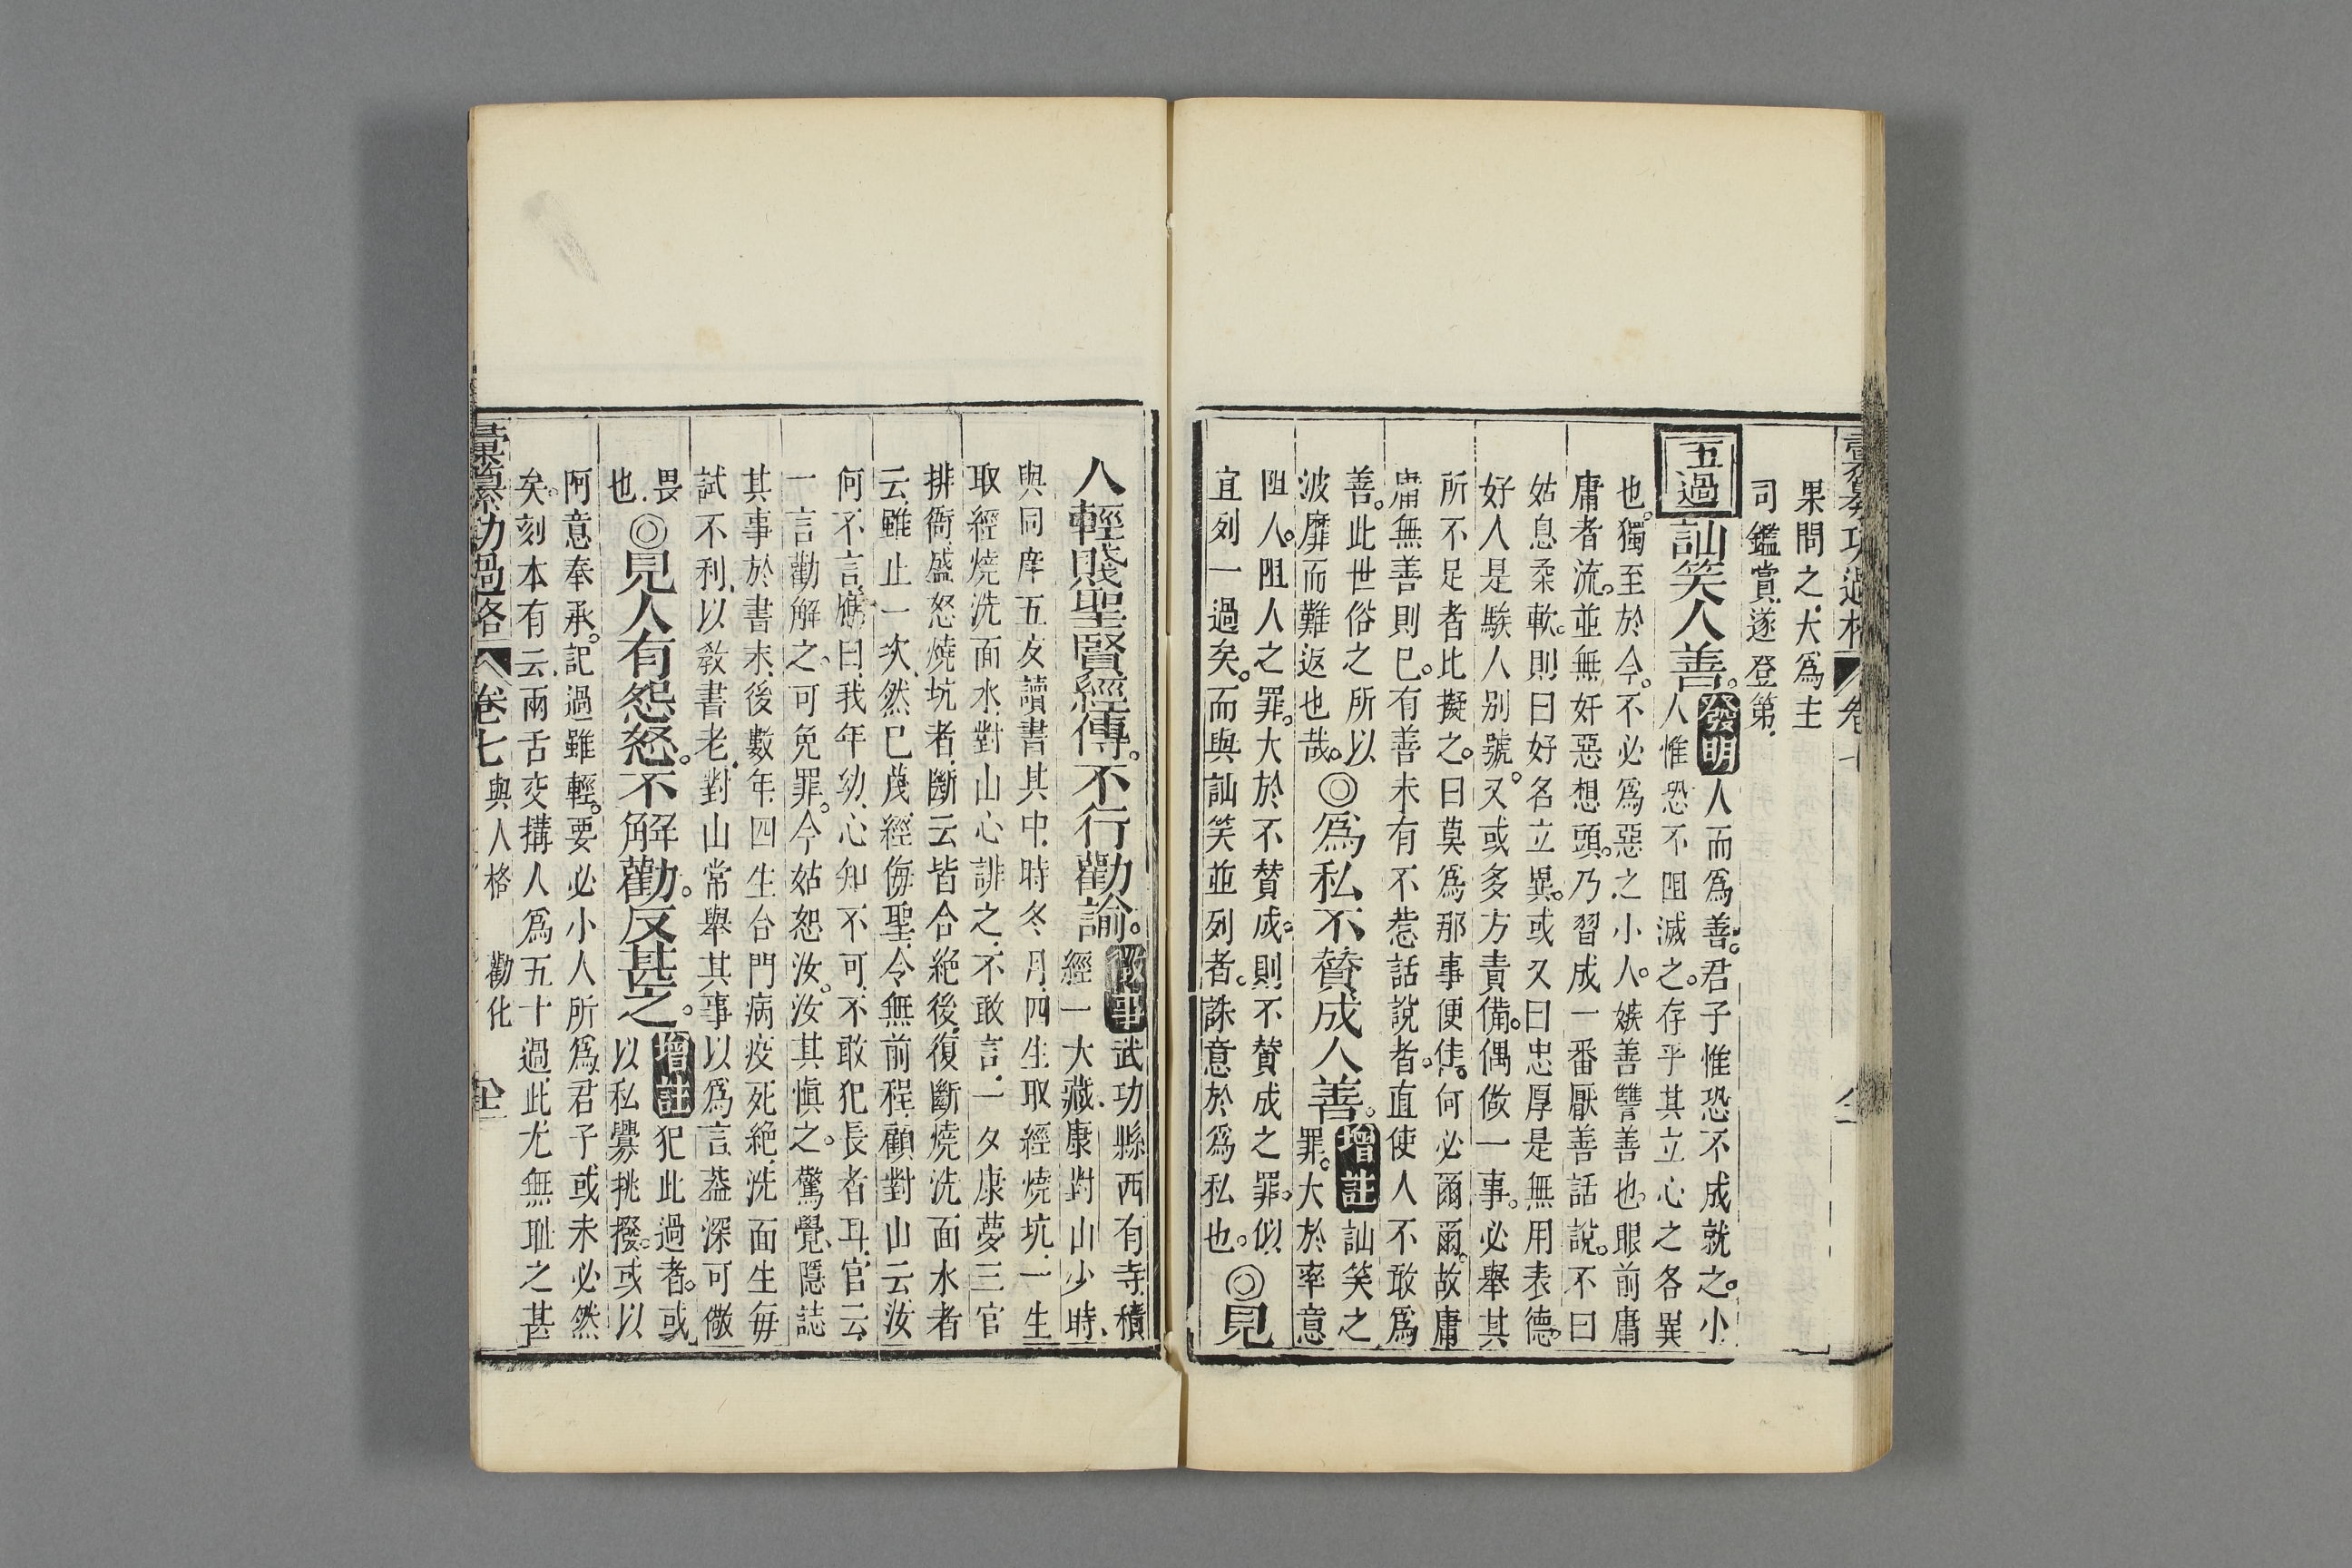 彙纂功過格 卷七
果問之大爲主
司鑑賞遂登第
五過 訕笑人善。發明 人而爲善。君子惟恐不成就之。小
人惟恐不阻滅之。存乎其立心之各異
也。獨至於今。不必爲惡之小人。嫉善讐善也。眼前庸
庸者流。並無奸惡想頭。乃習成一番厭善話說。不曰
姑息柔軟。則曰好名立異。或又曰忠厚是無用表德。
好人是騃人別號。又或多方責備。偶做一事。必舉其
所不足者比擬之。曰莫爲那事便佳。何必爾爾。故庸
庸無善則已。有善未有不惹話說者。直使人不敢爲
善。此世俗之所以
波靡而難返也哉。◎爲私不贊成人善。增註 訕笑之
罪。大於率意
阻人。阻人之罪。大於不贊成。則不贊成之罪。似
宜列一過矣。而與訕笑並列者。誅意於爲私也。◎見
人輕賤聖賢經傳。不行勸諭。徵事 武功縣西有寺積
經一大藏康對山少時、
與同庠五友讀書其中時冬月四生取經燒坑一生
取經燒洗面水對山心誹之不敢言一夕康夢三官
排衙盛怒燒坑者斷云皆合絶後復斷燒洗面水者
云雖止一次然已蔑經侮聖令無前程顧對山云汝
何不言應曰我年幼心知不可不敢犯長者耳官云
一言勸解之可免罪。今姑恕汝。汝其愼之。驚覺隱誌
其事於書末後數年四生台門病疫死絶洗面生每
試不利以敎書老對山常舉其事以爲言葢深可儆
畏
也 ◎見人有怨怒。不解勸。反甚之。增註 犯此過者。或
以私釁挑撥。或以
阿意奉承。記過雖輕。要必小人所爲君子或未必然
矣。刻本有云兩舌交搆人爲五十過此尤無耻之甚
彙纂功過格 卷七 與人格 勸化